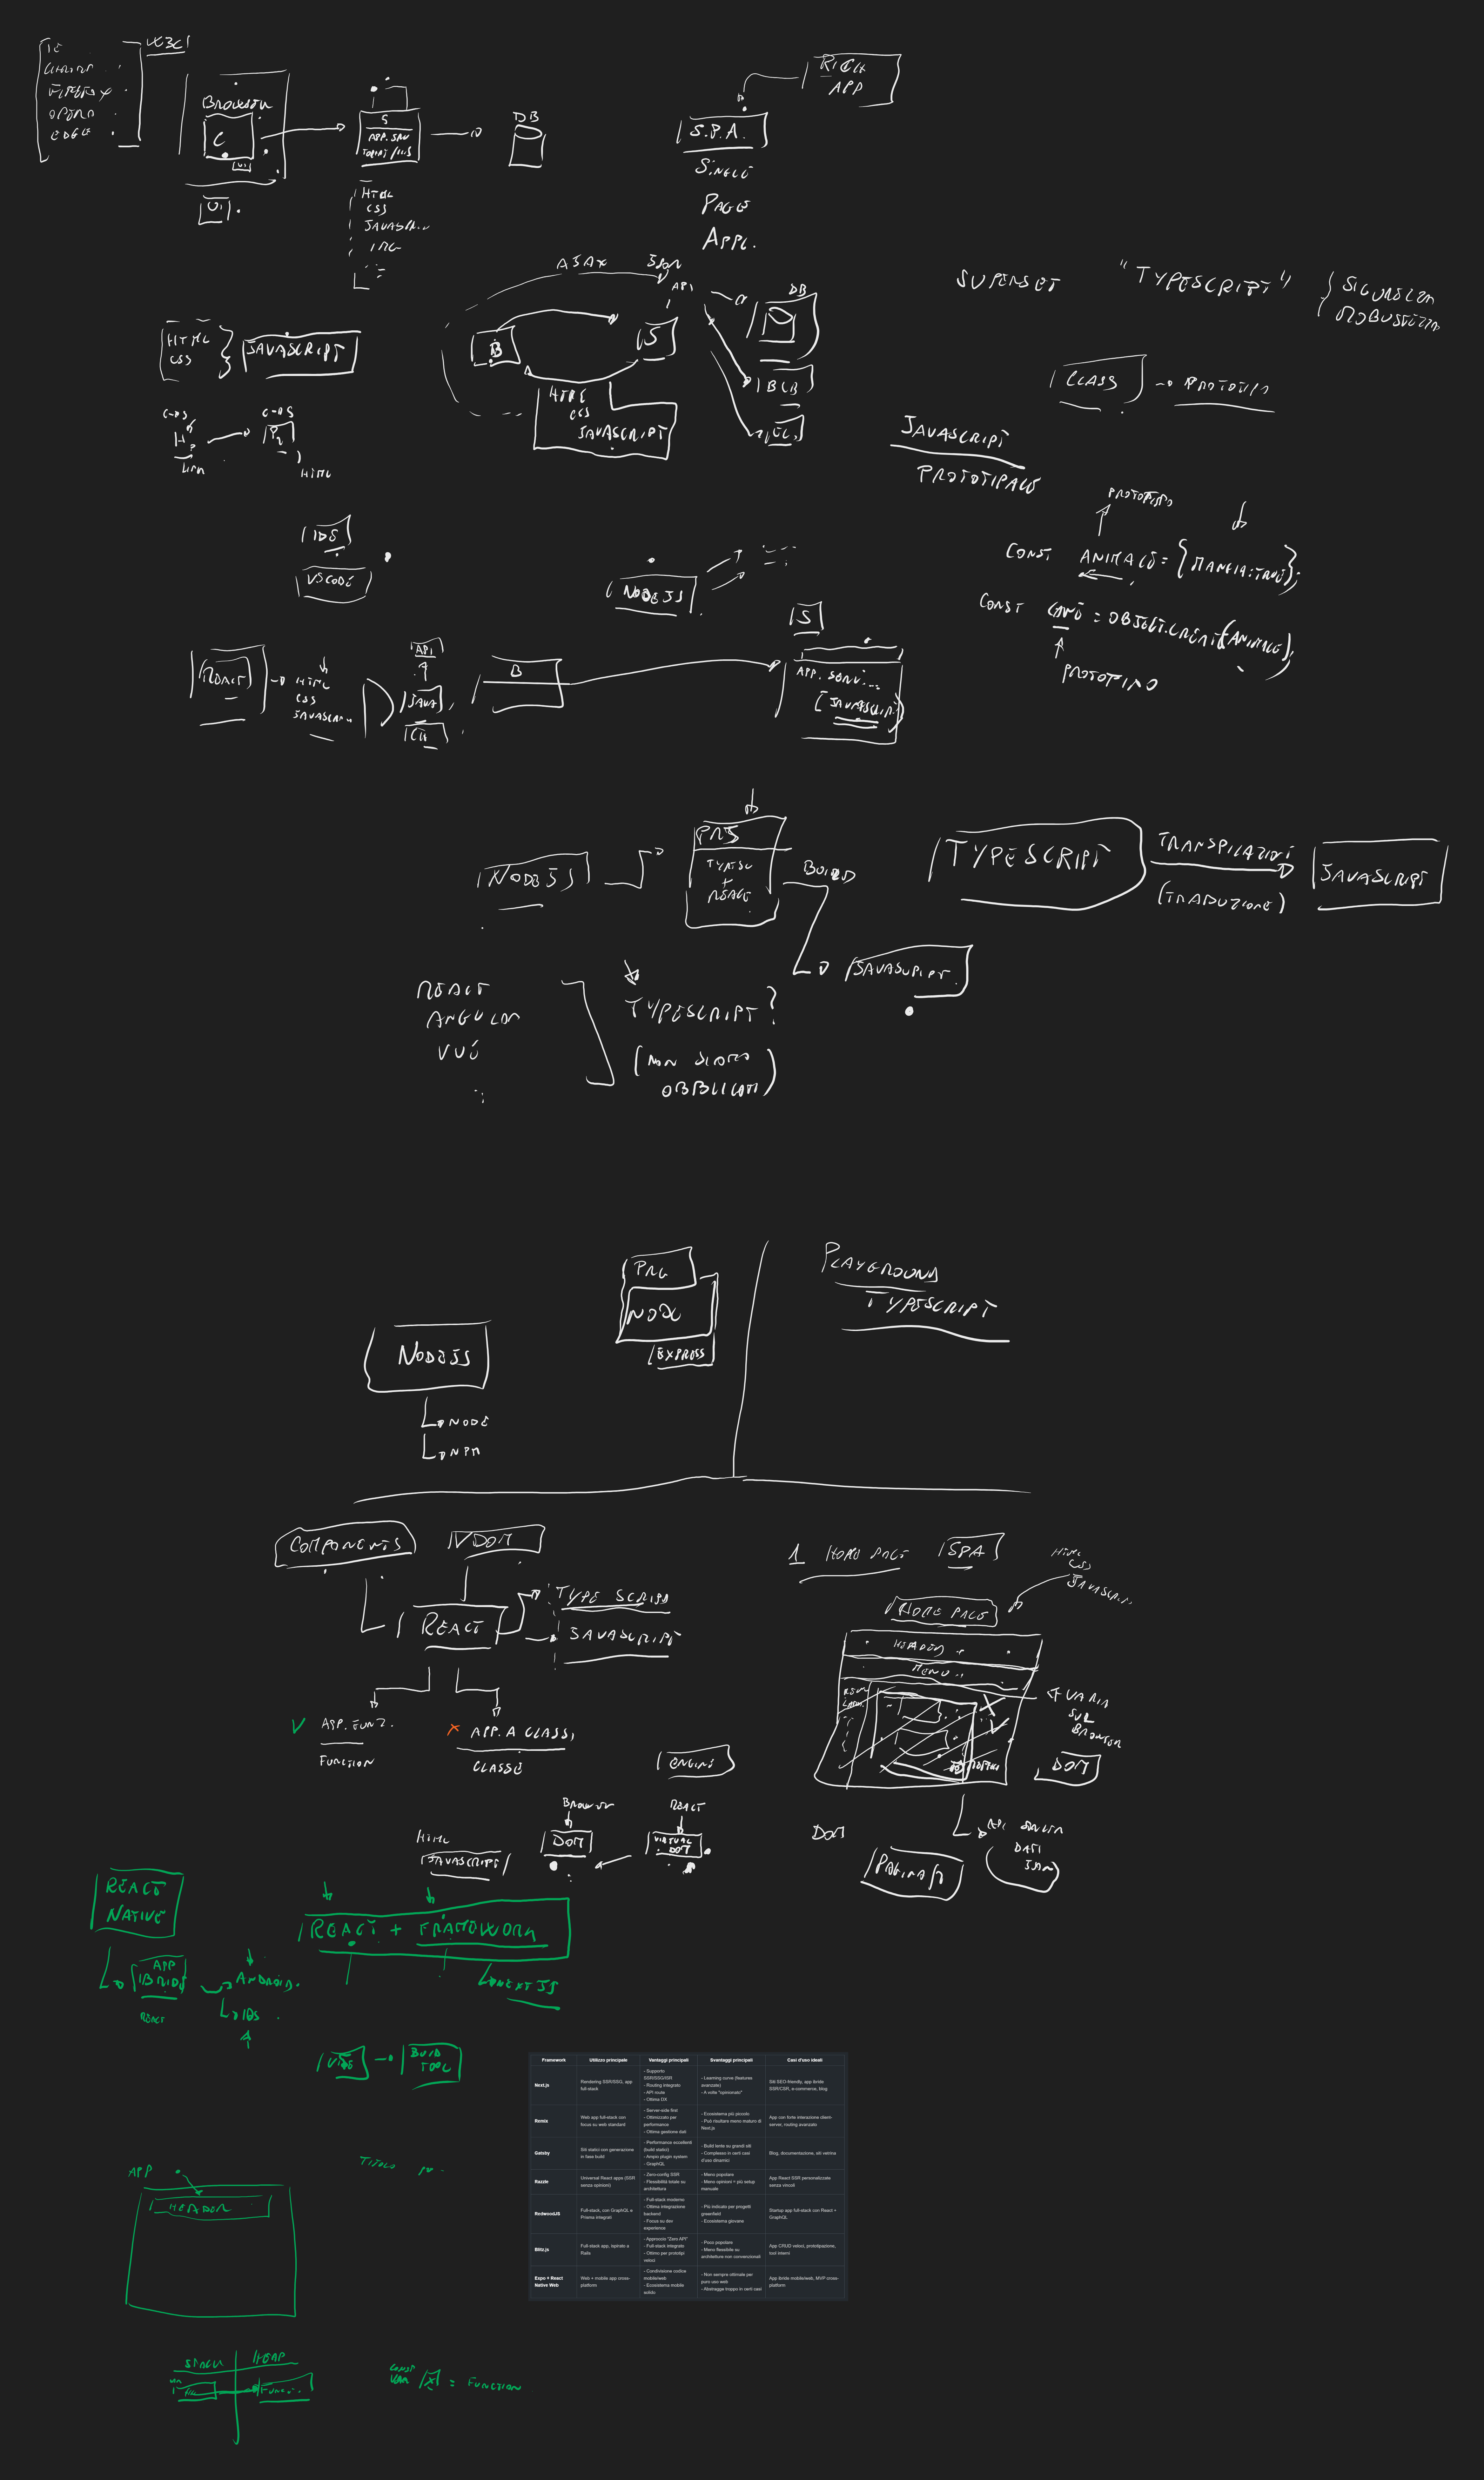 W3C
IE
CHROME
FIREFOX
OPERA
EDGE
BROWSER
C
UI
UI
S
APP. SERV
TOMCAT / IIS
DB
HTML
CSS
JAVASCRI..
IMG
RICH
APP
S.P.A.
SINGLE
PAGE
APPL.
AJAX
JSON
API
DB
B
S
HTML
CSS
JAVASCRIPT
HTML
CSS
JAVASCRIPT
HTML
SUPERSET
"TYPESCRIPT"
SICUREZZA
ROBUSTEZZA
CLASS
PROTOTIPO
JAVASCRIPT
PROTOTIPALE
PROTOTIPO
CONST ANIMALE = {MANGIA:TRUE};
CONST CANE = OBJECT.CREATE(ANIMALE);
PROTOTIPO
IDE
VSCODE
NODEJS
S
REACT
HTML
CSS
JAVASCRIPT
API
JAVA
C#
B
APP. SERV...
JAVASCRIPT
NODEJS
TYPESC
+
REACT
BUILD
JAVASCRIPT
TYPESCRIPT
TRANSPILAZIONE
(TRADUZIONE)
JAVASCRIPT
REACT
ANGULAR
VUE
TYPESCRIPT?
(NON SIETE
OBBLIGATI)
PRG
NODE
EXPRESS
PLAYGROUND
TYPESCRIPT
NODEJS
NODE
NPM
COMPONENTS
VDOM
REACT
TYPE SCRIPT
JAVASCRIPT
APP. FUNZ.
FUNCTION
APP. A CLASSI
CLASSE
1 HOME PAGE
SPA
HTML
CSS
JAVASCRIPT
HOME PAGE
HEADER
MENU
VARIA
SUL
BROWSER
DOM
ENGINE
BROWSER
REACT
HTML
JAVASCRIPT
DOM
VIRTUAL
DOM
DOM
DATI
JSON
REACT
NATIVE
APP
IBRIDE
REACT
ANDROID
IOS
REACT + FRAMEWORK
NEXTJS
VITE
BUILD
TOOL
Framework Utilizzo principale Vantaggi principali Svantaggi principali Casi d'uso ideali
Next.js
Rendering SSR/SSG, app
full-stack
- Supporto
SSR/SSG/ISR
- Routing integrato
- API route
- Ottima DX
- Learning curve (features
avanzate)
- A volte "opinionato"
Siti SEO-friendly, app ibride
SSR/CSR, e-commerce, blog
Remix
Web app full-stack con
focus su web standard
- Server-side first
- Ottimizzato per
performance
- Ottima gestione dati
- Ecosistema più piccolo
- Può risultare meno maturo di
Next.js
App con forte interazione client-
server, routing avanzato
Gatsby
Siti statici con generazione
in fase build
- Performance eccellenti
(build statici)
- Ampio plugin system
- GraphQL
- Build lente su grandi siti
- Complesso in certi casi
d'uso dinamici
Blog, documentazione, siti vetrina
Razzle
Universal React apps (SSR
senza opinioni)
- Zero-config SSR
- Flessibilità totale su
architettura
- Meno popolare
- Meno opinioni = più setup
manuale
App React SSR personalizzate
senza vincoli
RedwoodJS
Full-stack, con GraphQL e
Prisma integrati
- Full-stack moderno
- Ottima integrazione
backend
- Focus su dev
experience
- Più indicato per progetti
greenfield
- Ecosistema giovane
Startup app full-stack con React +
GraphQL
Blitz.js
Full-stack app, ispirato a
Rails
- Approccio "Zero API"
- Full-stack integrato
- Ottimo per prototipi
veloci
- Poco popolare
- Meno flessibile su
architetture non convenzionali
App CRUD veloci, prototipazione,
tool interni
Expo + React
Native Web
Web + mobile app cross-
platform
- Condivisione codice
mobile/web
- Ecosistema mobile
solido
- Non sempre ottimale per
puro uso web
- Abstragge troppo in certi casi
App ibride mobile/web, MVP cross-
platform
TITOLO
APP
HEADER
STACK
HEAP
FUNC..
CONST
VAR X = FUNCTION